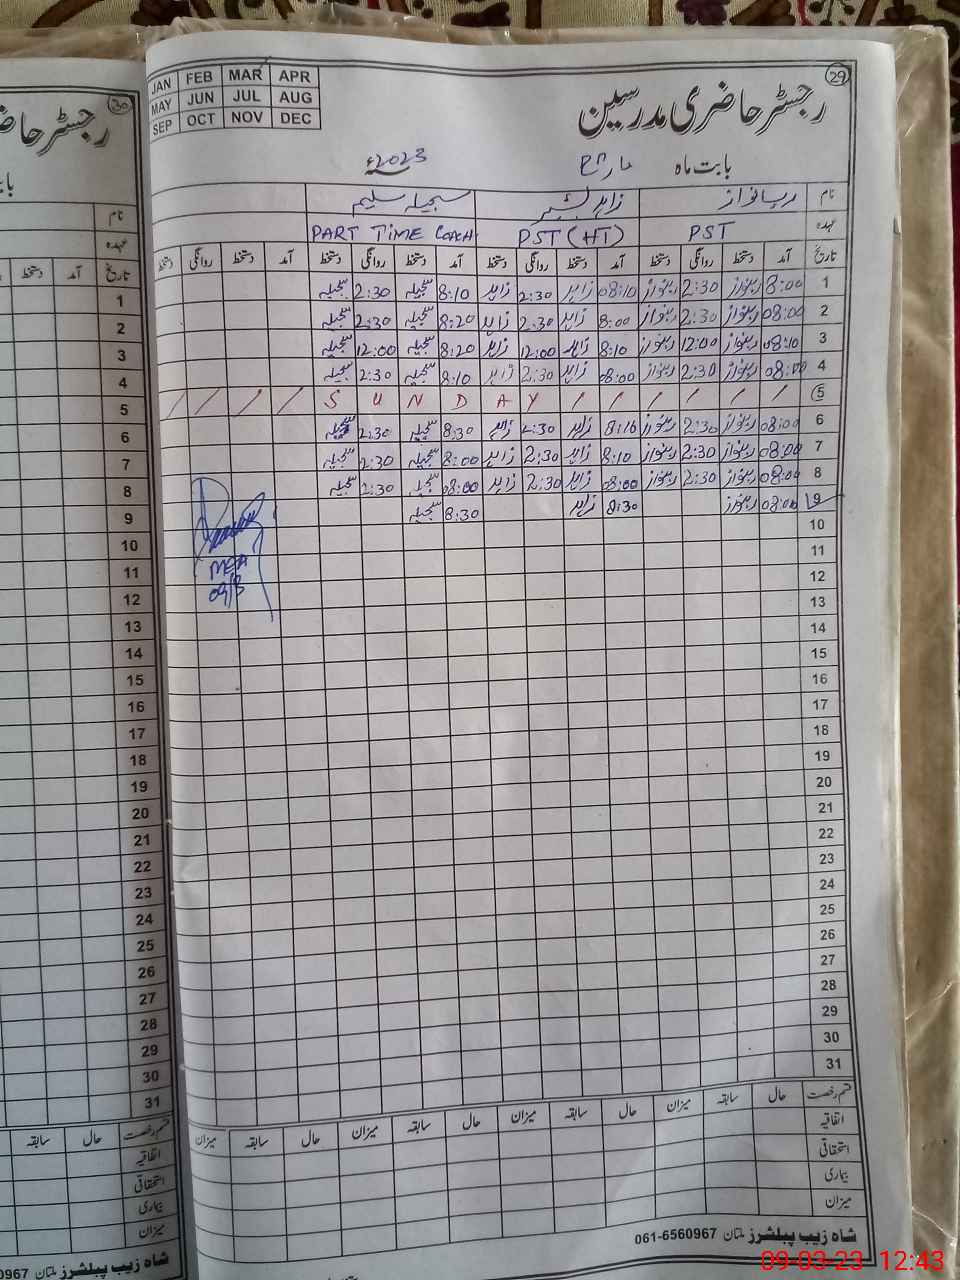 30
رجسٹر حاضری
نام
عہدہ
تاریخ آمد دستخط
1
2
3
4
5
6
7
8
9
10
11
12
13
14
15
16
17
18
19
20
21
22
23
24
25
26
27
28
29
30
31
قسم رخصت حال سابقہ
اتفاقیہ
استحقاقی
بیماری
میزان
شاہ زیب پبلشرز ملتان
JAN FEB MAR APR
MAY JUN JUL AUG
SEP OCT NOV DEC
29
رجسٹر حاضری مدرسین
بابت ماہ مارچ 2023ء
نام ربنواز زاہد بشیر سجیلہ سلیم
عہدہ PST PST (HT) PART TIME COACH
تاریخ آمد دستخط روانگی دستخط آمد دستخط روانگی دستخط آمد دستخط روانگی دستخط آمد دستخط روانگی دستخط
1 8:00 ربنواز 2:30 ربنواز 08:10 زاہد 2:30 زاہد 8:10 سجیلہ 2:30 سجیلہ
2 08:00 ربنواز 2:30 ربنواز 8:00 زاہد 2:30 زاہد 8:20 سجیلہ 2:30 سجیلہ
3 08:10 ربنواز 12:00 ربنواز 8:10 زاہد 12:00 زاہد 8:20 سجیلہ 12:00 سجیلہ
4 08:00 ربنواز 2:30 ربنواز 08:00 زاہد 2:30 زاہد 8:10 سجیلہ 2:30 سجیلہ
5 / / / / / / S U N D A Y / / / /
6 08:00 ربنواز 2:30 ربنواز 8:10 زاہد 2:30 زاہد 8:30 سجیلہ 2:30 سجیلہ
7 08:00 ربنواز 2:30 ربنواز 8:10 زاہد 2:30 زاہد 8:00 سجیلہ 2:30 سجیلہ
8 08:00 ربنواز 2:30 ربنواز 08:00 زاہد 2:30 زاہد 08:00 سجیلہ 2:30 سجیلہ
9 08:00 ربنواز 8:30 زاہد 8:30 سجیلہ
MEA
09/3
10
11
12
13
14
15
16
17
18
19
20
21
22
23
24
25
26
27
28
29
30
31
قسم رخصت حال سابقہ میزان حال سابقہ میزان حال سابقہ میزان حال سابقہ میزان
اتفاقیہ
استحقاقی
بیماری
میزان
شاہ زیب پبلشرز ملتان 061-6560967
09-03-23 12:43